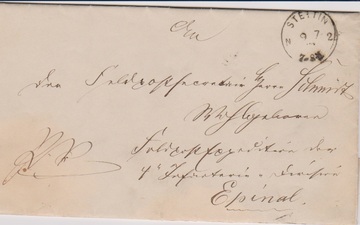 STETTIN
9 7 72
7-8N
An
den Feldpostsecretair Herrn Schmidt
Wohlgeboren
Feldpost Expedition der
4ᵗ Infanterie-Division
Epinal.